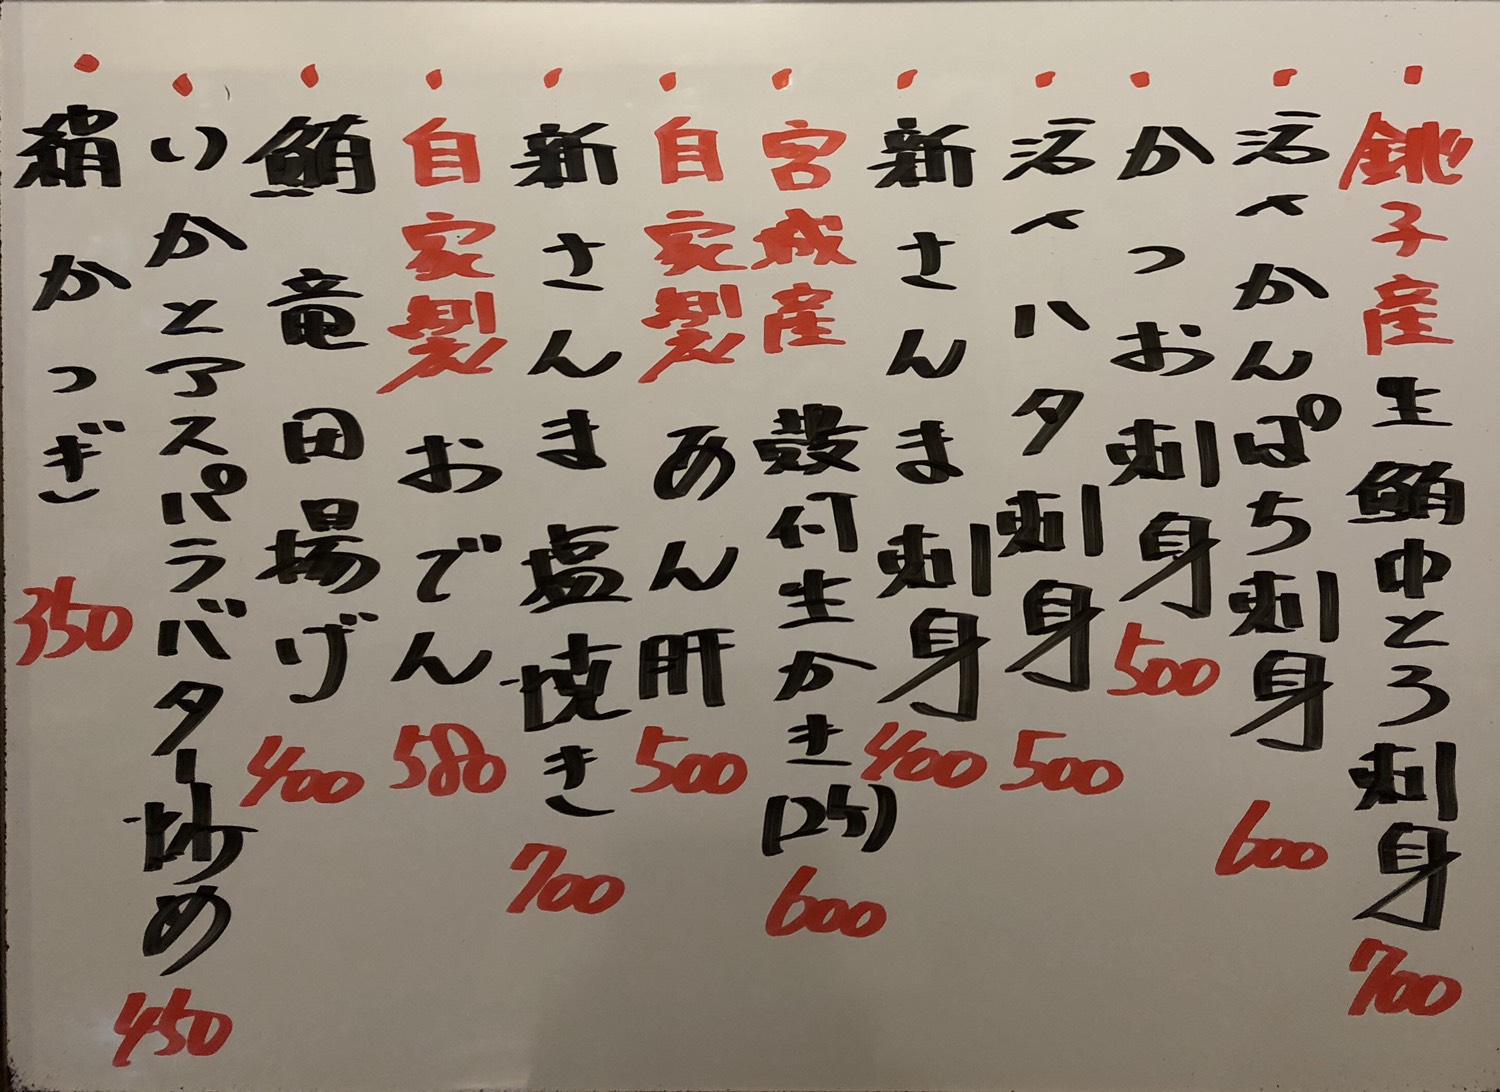 ・銚子産生鮪中とろ刺身 700
・活〆かんぱち刺身 600
・かつお刺身 500
・活〆ハタ刺身 500
・新さんま刺身 400
・宮城産 殻付生かき(2ヶ) 600
・自家製 あん肝 500
・新さんま塩焼き 700
・自家製おでん 580
・鮪竜田揚げ 400
・いかとアスパラバター炒め 450
・絹かつぎ 350